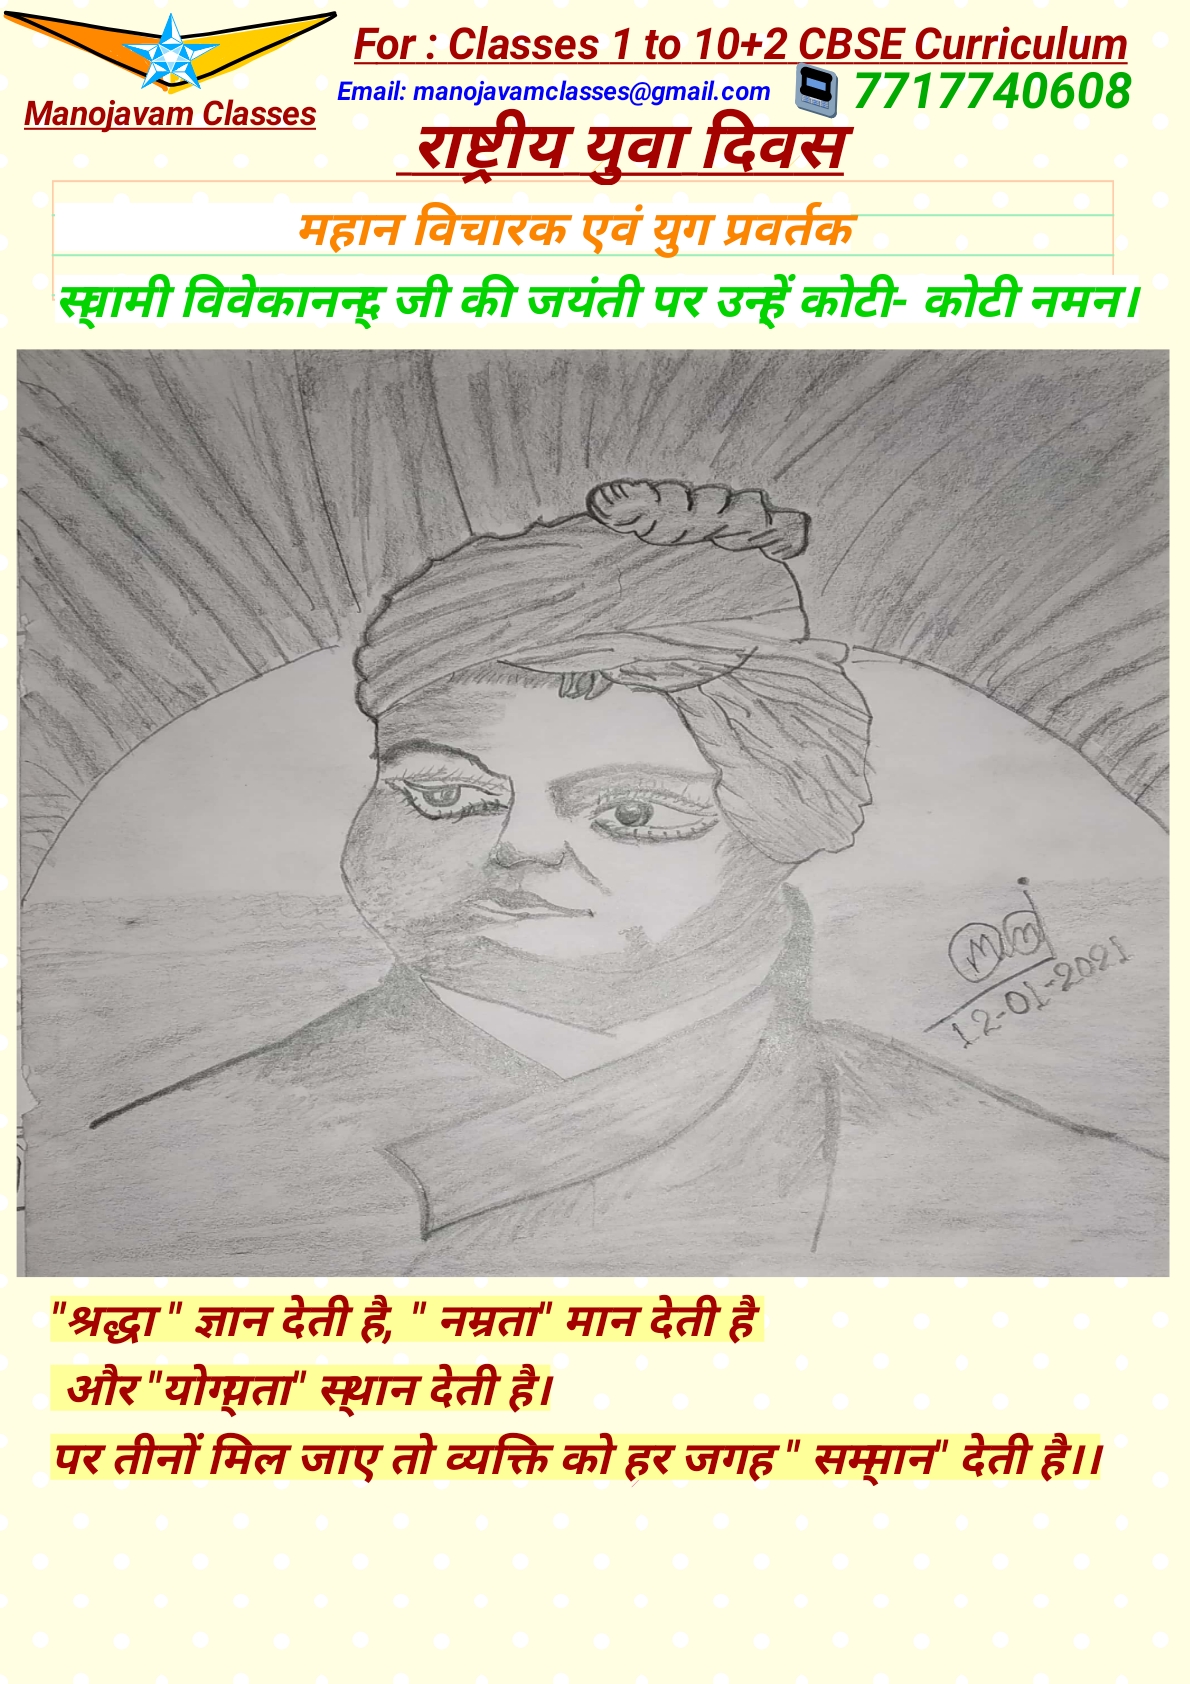 For : Classes 1 to 10+2 CBSE Curriculum
Email: manojavamclasses@gmail.com 7717740608
Manojavam Classes
राष्ट्रीय युवा दिवस
महान विचारक एवं युग प्रवर्तक
स्वामी विवेकानन्द जी की जयंती पर उन्हें कोटी- कोटी नमन।
12-01-2021
"श्रद्धा " ज्ञान देती है, " नम्रता" मान देती है
और "योग्यता" स्थान देती है।
पर तीनों मिल जाए तो व्यक्ति को हर जगह " सम्मान" देती है।।